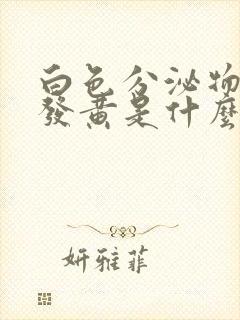 白色分泌物
發黃是什麼
妍雅菲